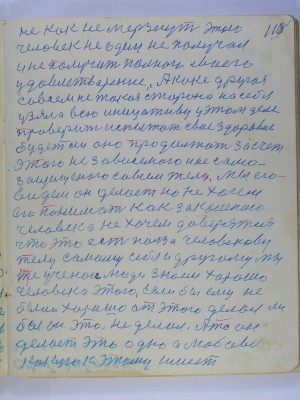 118
не как не мерзнут этого
человек не один не получал
и не получит полного своего
удовлетворение, А коке другая
совсем не такая сторона на себя
узяла всю инициативу у этом деле
проверит испытат свое здоровье
будет ли оно продолжат за счет
этого не зависемого и не само-
защищеного совсем тела, мы его
видем он делает но не хочем
его понимат как закаленого
человека не хочем доверэтой
что это есть по за человекову
телу самому себя и другому мы
уже ученою люди знаем хорошо
человека этого, если бы ему не
было хорошо от этого делал ли
бы он это, не делал. А то он
делает это одно а мы совс
к этому имеет